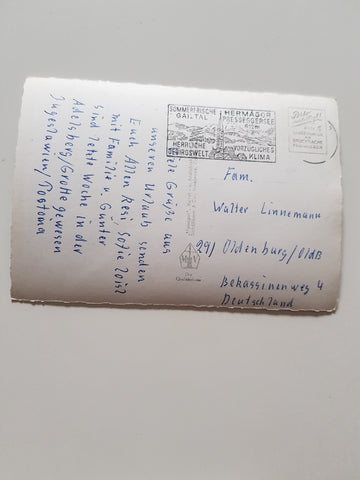 Viele Grüße aus
unserem Urlaub senden
Euch Allen Resi, Sofie Zoisl
mit Familie u. Günter
sind letzte Woche in der
Adelsberg/Grotte gewesen
Jugoslawien/Postona
SOMMERFRISCHE
GAILTAL
HERMAGOR
PRESSEGGERSEE
612m
HERRLICHE
GEBIRGSWELT
VORZÜGLICHES
KLIMA
Fam.
Walter Linnemann
291 Oldenburg/OldB
Bekassinenweg 4
Deutschland